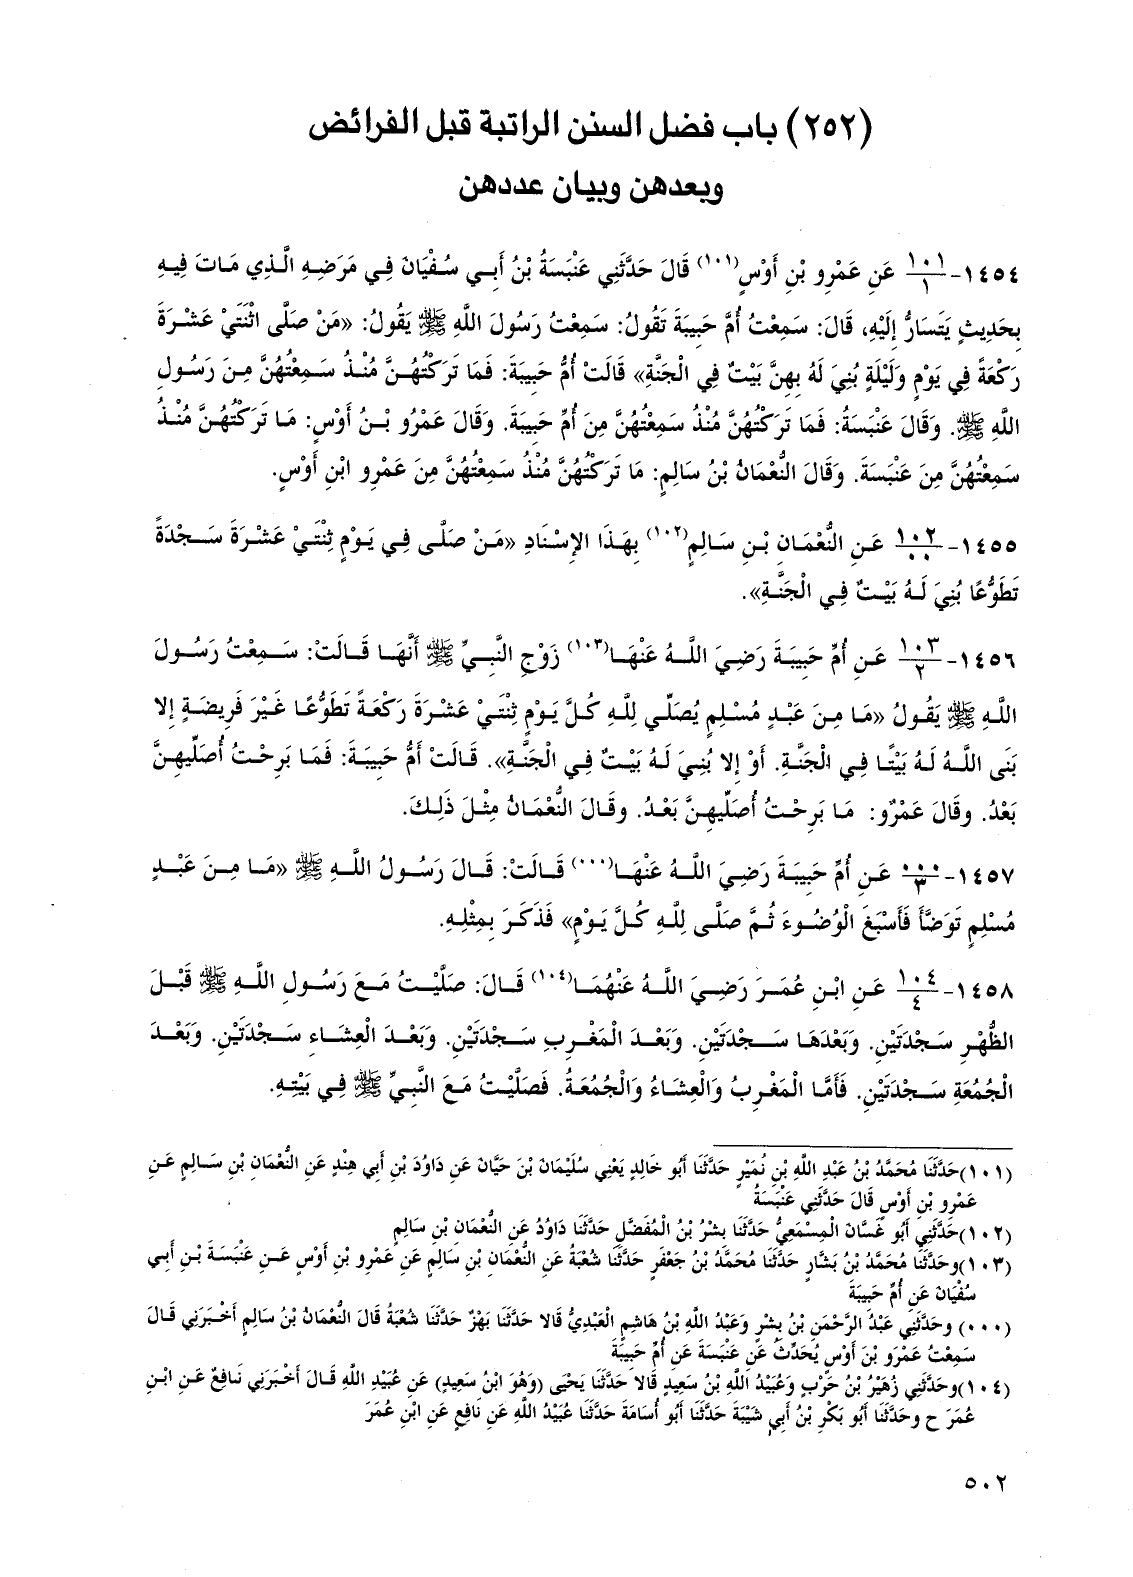 (٢٥٢) باب فضل السنن الراتبة قبل الفرائض
وبعدهن وبيان عددهن
١٤٥٤- ١٠١/١ عَنِ عَمْرِو بْنِ أَوْسٍ(١٠١) قَالَ حَدَّثَنِي عَنْبَسَةُ بْنُ أَبِي سُفْيَانَ فِي مَرَضِهِ الَّذِي مَاتَ فِيهِ
بِحَدِيثٍ يَتَسَارُّ إِلَيْهِ، قَالَ: سَمِعْتُ أُمَّ حَبِيبَةَ تَقُولُ: سَمِعْتُ رَسُولَ اللَّهِ ﷺ يَقُولُ: «مَنْ صَلَّى اثْنَتَيْ عَشْرَةَ
رَكْعَةً فِي يَوْمٍ وَلَيْلَةٍ بُنِيَ لَهُ بِهِنَّ بَيْتٌ فِي الْجَنَّةِ» قَالَتْ أُمُّ حَبِيبَةَ: فَمَا تَرَكْتُهُنَّ مُنْذُ سَمِعْتُهُنَّ مِنَ رَسُولِ
اللَّهِ ﷺ. وَقَالَ عَنْبَسَةُ: فَمَا تَرَكْتُهُنَّ مُنْذُ سَمِعْتُهُنَّ مِنَ أُمِّ حَبِيبَةَ. وَقَالَ عَمْرُو بْنُ أَوْسٍ: مَا تَرَكْتُهُنَّ مُنْذُ
سَمِعْتُهُنَّ مِنَ عَنْبَسَةَ. وَقَالَ النُّعْمَانُ بْنُ سَالِمٍ: مَا تَرَكْتُهُنَّ مُنْذُ سَمِعْتُهُنَّ مِنَ عَمْرِو ابْنِ أَوْسٍ.
١٤٥٥- ١٠٢/٠٠ عَنِ النُّعْمَانِ بْنِ سَالِمٍ(١٠٢) بِهَذَا الإِسْنَادِ «مَنْ صَلَّى فِي يَوْمٍ ثِنْتَيْ عَشْرَةَ سَجْدَةً
تَطَوُّعًا بُنِيَ لَهُ بَيْتٌ فِي الْجَنَّةِ».
١٤٥٦- ١٠٣/٢ عَنِ أُمِّ حَبِيبَةَ رَضِيَ اللَّهُ عَنْهَا(١٠٣) زَوْجِ النَّبِيِّ ﷺ أَنَّهَا قَالَتْ: سَمِعْتُ رَسُولَ
اللَّهِ ﷺ يَقُولُ «مَا مِنَ عَبْدٍ مُسْلِمٍ يُصَلِّي لِلَّهِ كُلَّ يَوْمٍ ثِنْتَيْ عَشْرَةَ رَكْعَةً تَطَوُّعًا غَيْرَ فَرِيضَةٍ إِلا
بَنَى اللَّهُ لَهُ بَيْتًا فِي الْجَنَّةِ. أَوْ إِلا بُنِيَ لَهُ بَيْتٌ فِي الْجَنَّةِ». قَالَتْ أُمُّ حَبِيبَةَ: فَمَا بَرِحْتُ أُصَلِّيهِنَّ
بَعْدُ. وقَالَ عَمْرٌو: مَا بَرِحْتُ أُصَلِّيهِنَّ بَعْدُ. وقَالَ النُّعْمَانُ مِثْلَ ذَلِكَ.
١٤٥٧- ٠٠٠/٣ عَنِ أُمِّ حَبِيبَةَ رَضِيَ اللَّهُ عَنْهَا(٠٠٠) قَالَتْ: قَالَ رَسُولُ اللَّهِ ﷺ «مَا مِنَ عَبْدٍ
مُسْلِمٍ تَوَضَّأَ فَأَسْبَغَ الْوُضُوءَ ثُمَّ صَلَّى لِلَّهِ كُلَّ يَوْمٍ» فَذَكَرَ بِمِثْلِهِ.
١٤٥٨- ١٠٤/٤ عَنِ ابْنِ عُمَرَ رَضِيَ اللَّهُ عَنْهُمَا(١٠٤) قَالَ: صَلَّيْتُ مَعَ رَسُولِ اللَّهِ ﷺ قَبْلَ
الظُّهْرِ سَجْدَتَيْنِ. وَبَعْدَهَا سَجْدَتَيْنِ. وَبَعْدَ الْمَغْرِبِ سَجْدَتَيْنِ. وَبَعْدَ الْعِشَاءِ سَجْدَتَيْنِ. وَبَعْدَ
الْجُمُعَةِ سَجْدَتَيْنِ. فَأَمَّا الْمَغْرِبُ وَالْعِشَاءُ وَالْجُمُعَةُ. فَصَلَّيْتُ مَعَ النَّبِيِّ ﷺ فِي بَيْتِهِ.
(١٠١)حَدَّثَنَا مُحَمَّدُ بْنُ عَبْدِ اللَّهِ بْنِ نُمَيْرٍ حَدَّثَنَا أَبُو خَالِدٍ يَعْنِي سُلَيْمَانَ بْنَ حَيَّانَ عَن دَاوُدَ بْنِ أَبِي هِنْدٍ عَنِ النُّعْمَانِ بْنِ سَالِمٍ عَنِ
عَمْرِو بْنِ أَوْسٍ قَالَ حَدَّثَنِي عَنْبَسَةُ
(١٠٢)حَدَّثَنِي أَبُو غَسَّانَ الْمِسْمَعِيُّ حَدَّثَنَا بِشْرُ بْنُ الْمُفَضَّلِ حَدَّثَنَا دَاوُدُ عَنِ النُّعْمَانِ بْنِ سَالِمٍ
(١٠٣)وحَدَّثَنَا مُحَمَّدُ بْنُ بَشَّارٍ حَدَّثَنَا مُحَمَّدُ بْنُ جَعْفَرٍ حَدَّثَنَا شُعْبَةُ عَنِ النُّعْمَانِ بْنِ سَالِمٍ عَنِ عَمْرِو بْنِ أَوْسٍ عَنِ عَنْبَسَةَ بْنِ أَبِي
سُفْيَانَ عَنِ أُمِّ حَبِيبَةَ
(٠٠٠) وحَدَّثَنِي عَبْدُ الرَّحْمَنِ بْنُ بِشْرٍ وَعَبْدُ اللَّهِ بْنُ هَاشِمٍ الْعَبْدِيُّ قَالا حَدَّثَنَا بَهْزٌ حَدَّثَنَا شُعْبَةُ قَالَ النُّعْمَانُ بْنُ سَالِمٍ أَخْبَرَنِي قَالَ
سَمِعْتُ عَمْرَو بْنَ أَوْسٍ يُحَدِّثُ عَنِ عَنْبَسَةَ عَنِ أُمِّ حَبِيبَةَ
(١٠٤)وحَدَّثَنِي زُهَيْرُ بْنُ حَرْبٍ وَعُبَيْدُ اللَّهِ بْنُ سَعِيدٍ قَالاَ حَدَّثَنَا يَحْيَى (وَهُوَ ابْنُ سَعِيدٍ) عَنِ عُبَيْدِ اللَّهِ قَالَ أَخْبَرَنِي نَافِعٌ عَنِ ابْنِ
عُمَرَ ح وحَدَّثَنَا أَبُو بَكْرِ بْنُ أَبِي شَيْبَةَ حَدَّثَنَا أَبُو أُسَامَةَ حَدَّثَنَا عُبَيْدُ اللَّهِ عَنِ نَافِعٍ عَنِ ابْنِ عُمَرَ
٥٠٢